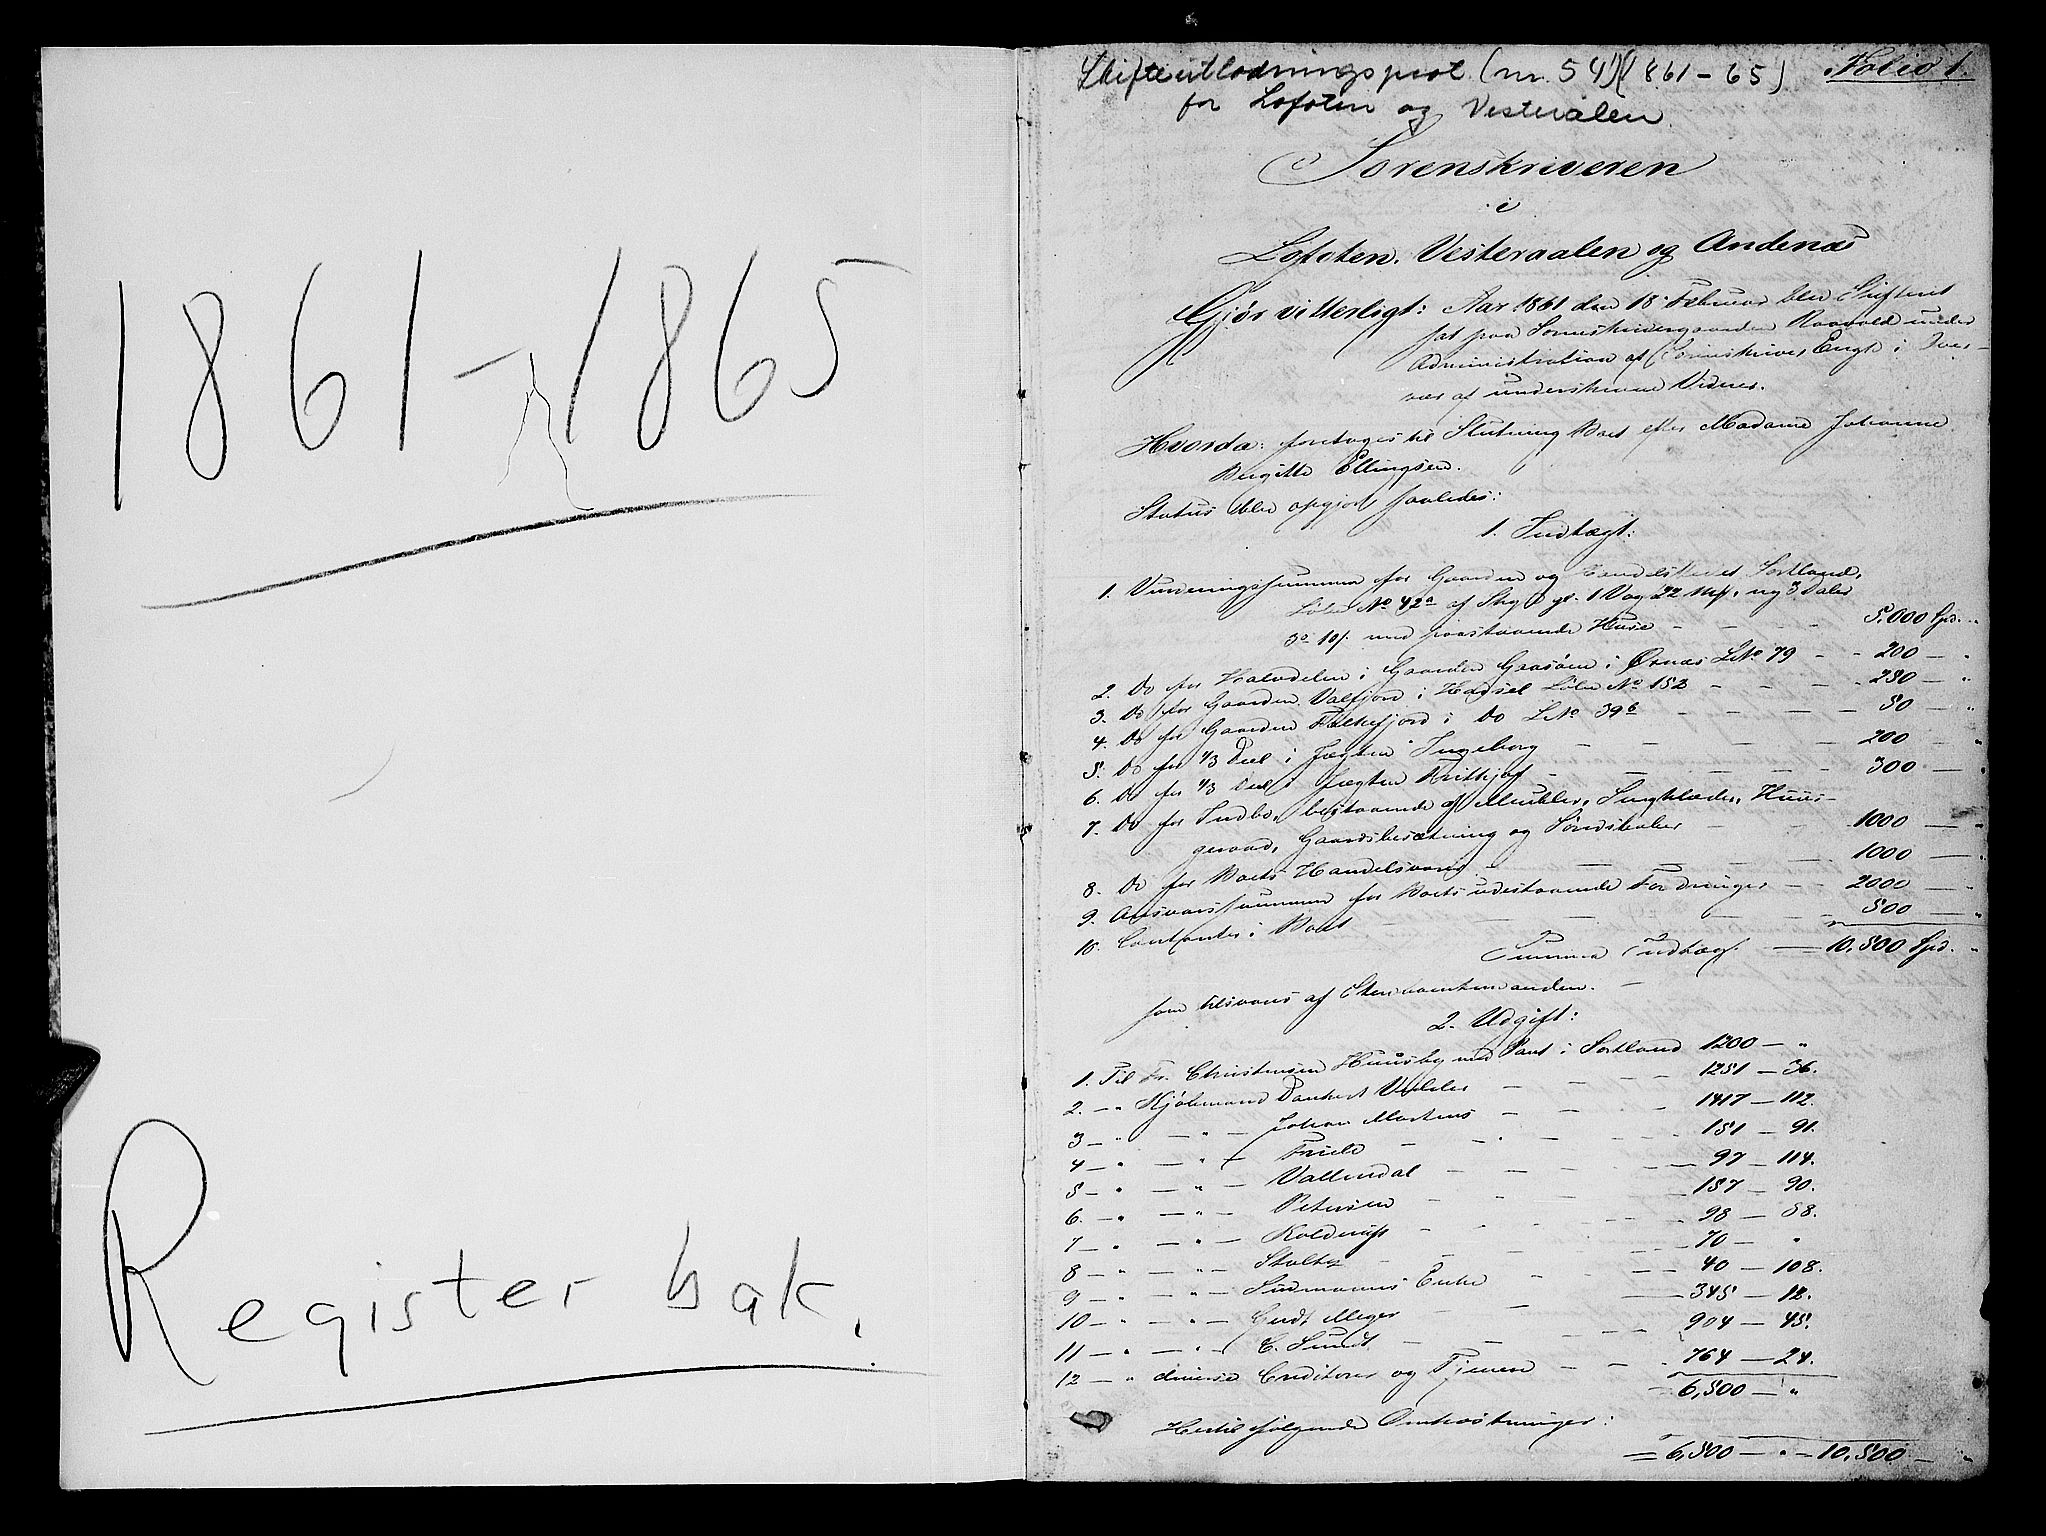 1861 - 1865
Register bak.
Skifteutlodningsprot. (nr. 54) (1861-65)
Folio 1.
for Lofoten og Vesterålen
Sorenskriveren
i
Lofoten, Vesteraalen og Andenæs
Gjør vitterligt: Aar 1861 den 18 Februar blev Skifteret
sat paa Sorenskrivergaarden under
Administration af Sorenskriver Engh i Over-
vær af underskrevne Vidner.
Hvorda: foretoges til Slutning Boet efter Madame Johanne
Birgitte Ellingsen.
Status blev opgjort saaledes:
1. Indtægt:
1. Vurderingssummen for Gaarden og Handelsstedet Sortland,
Løbe No 42a af Skyld gl. 1 Vog 22 Mk, ny 3 Daler
3 o 10 s med paastaaende Huse - - - 5,000 Spd. "
2. Do for Halvdelen i Gaarden Gaasøen i Øxnæs LNo 79 - - 200 - "
3. Do for Gaarden Valfjord i Hadsel Løbe No 152 - - - 250 - "
4. Do for Gaarden Falkefjord i Do LNo 39b - - - 50 - "
5. Do for 1/3 Deel i Jægten Ingeborg - - - 200 - "
6. Do for 1/3 Deel i Jægten Frithjof - - - 300 - "
7. Do for Indbo, bestaaende af Meubler, Sengklæder, Huus-
geraad, Gaardsbesætning og Søredskaber - 1000 - "
8. Do for Boets Handelsvarer - - - 1000 - "
9. Ansvarssummen for Boets udestaaende Fordringer - - 2000 - "
10. Contanter i Boet - - - 500 - "
Summa Indtægt - 10,500 Spd. "
som tilsvares af Enkemanden. -
2. Udgift:
1. Til Fr. Christensen Huusby med Pant i Sortland 1200 - "
2. - " Kjøbmand Danckert - - - 1251 - 36.
3 - " - " - Johan Mertens - - - 1417 - 112.
4 - " - " - Friele - - - 151 - 91.
5 - " - " - Vallendal - - - 97 - 114.
6. - " - " - Petersen - - - 157 - 90.
7 - " - " - Koldrup - - - 98 - 58.
8 - " - " - Stoltz - - - 70 - "
9 - " - " - Sudmanns Enke - - - 40 - 108.
10 - " - " - Gerdt Meyer - - - 345 - 12.
11 - " - " - C. Sundt - - - 904 - 45.
12 - " diverse Creditorer og Tjenere - - 764 - 24.
6,500 - "
Hertil følgende Omkostninger:
6,500 - " - 10,500 - "